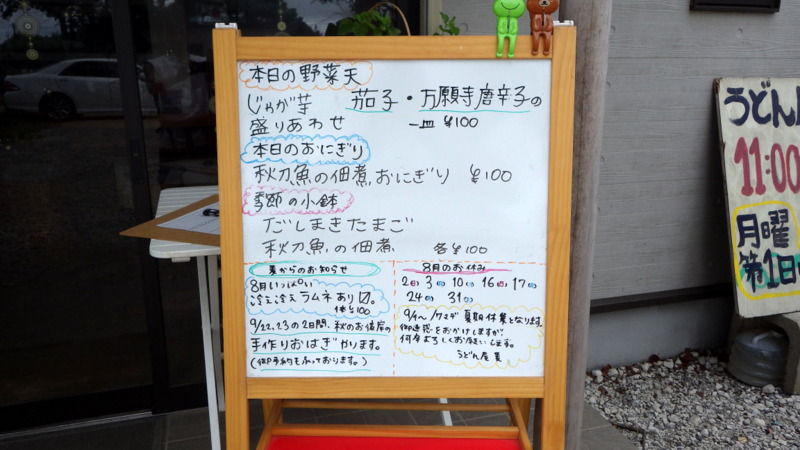 本日の野菜天
じゃが芋 茄子・万願寺唐辛子の
盛りあわせ 一皿 ¥100
本日のおにぎり
秋刀魚の佃煮おにぎり ¥100
季節の小鉢
だしまきたまご
秋刀魚の佃煮 各¥100
麦からのお知らせ
8月いっぱい
冷え冷えラムネあり〼。
1本¥100
9/22、23の2日間、秋のお彼岸の
手作りおはぎやります。
(御予約もうっております。)
8月のお休み
2 3 10 16 17
24 31
夏期休業となります。
御迷惑をおかけしますが
何卒よろしくお願いします。
うどん屋 麦
うどん
11:00
月曜
第1日